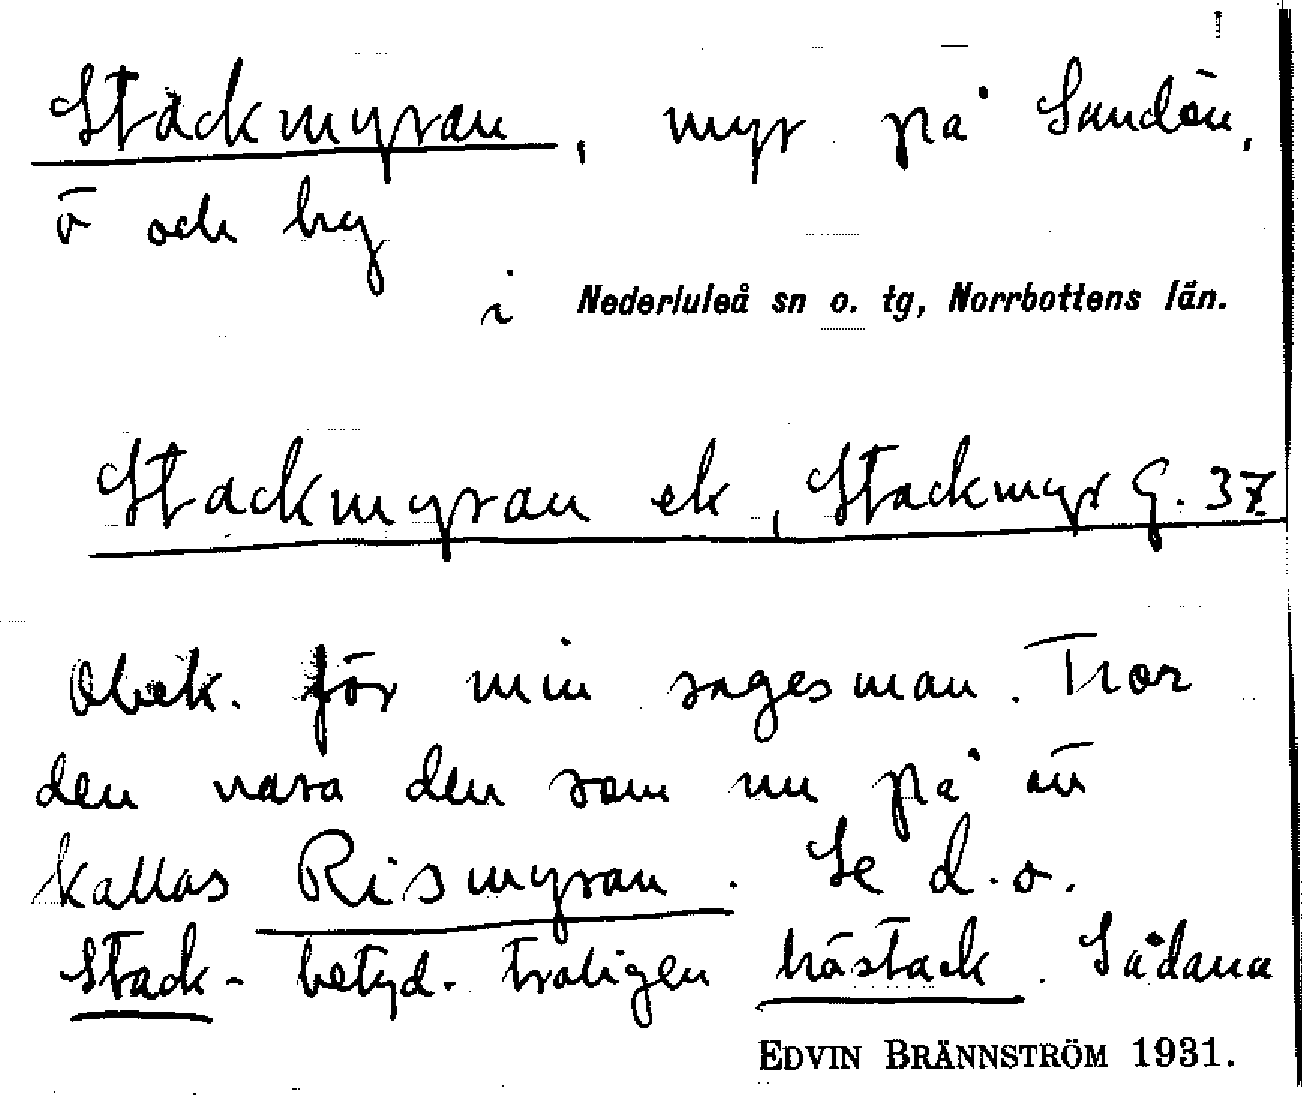 Stackmyran, myr på Sandön,
ö och by
i Nederluleå sn o. tg, Norrbottens län.
Stackmyran ek, Stackmyr G. 37
Obek. för min sagesman. Tror
den vara den som nu på ön
kallas Rismyran. Se d. o.
Stack- betyd. troligen höstack. Sådana
EDVIN BRÄNNSTRÖM 1931.